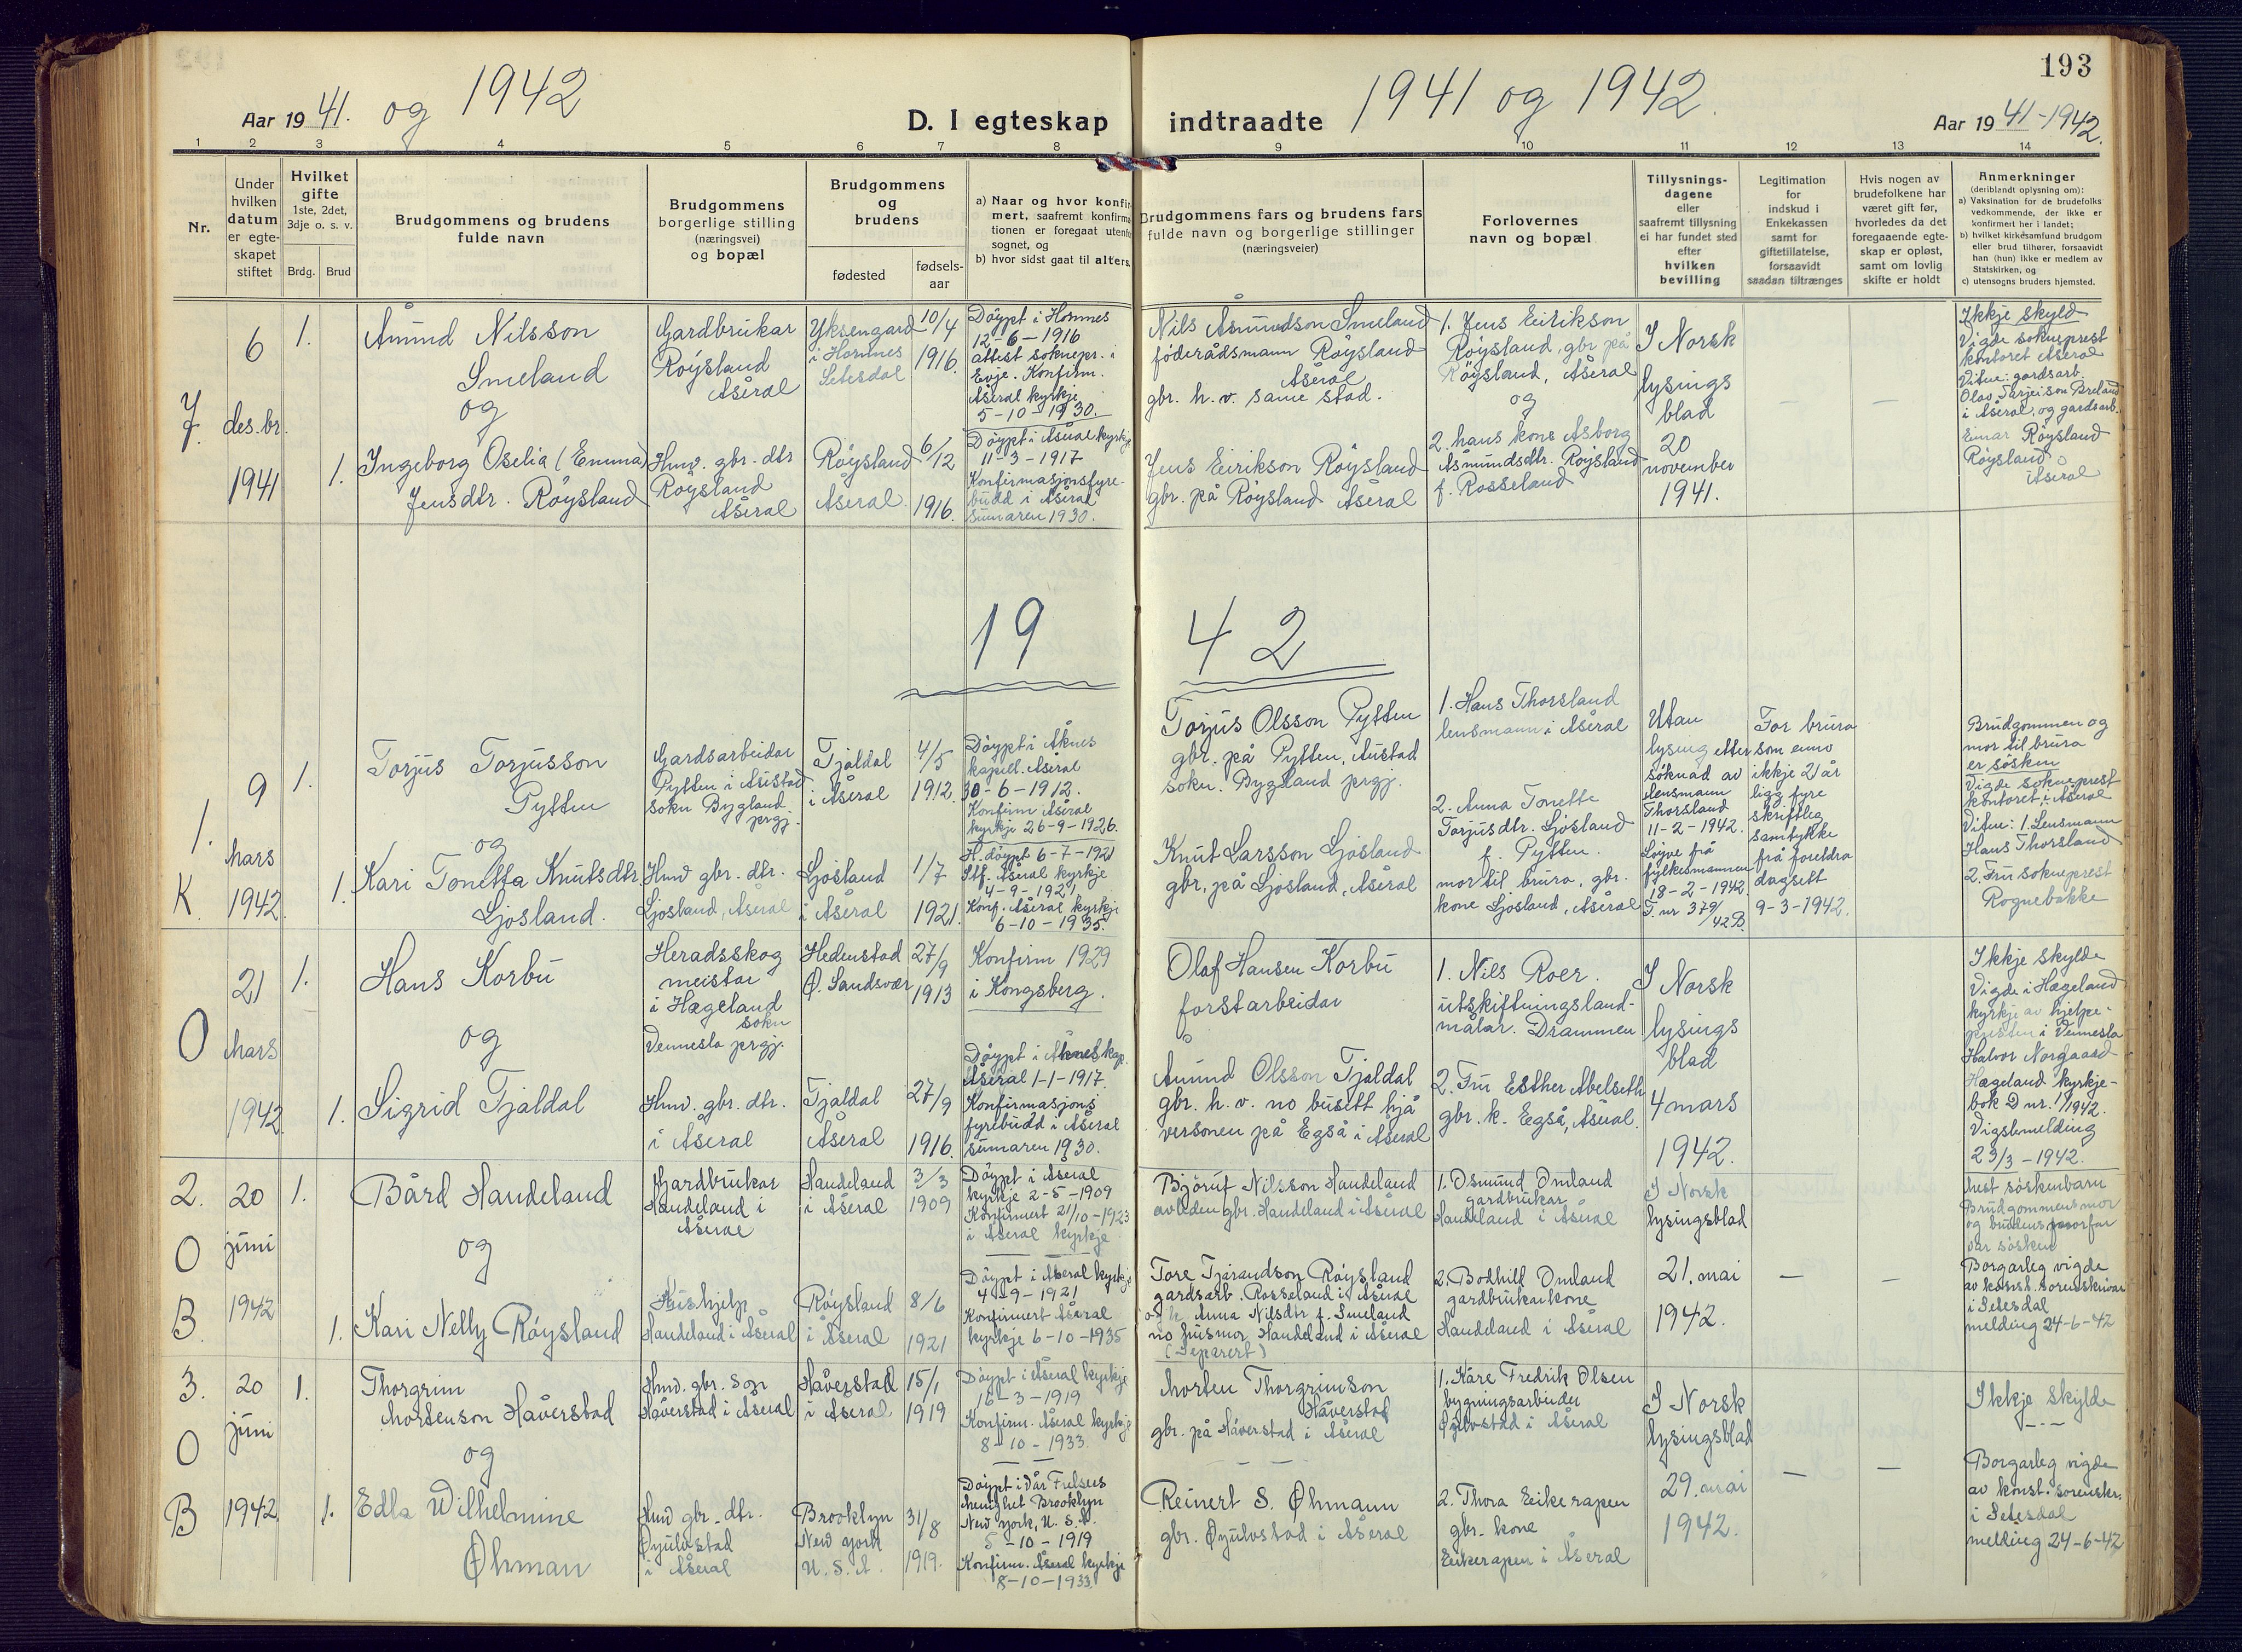 193
Aar 1941. og 1942
D. I egteskap indtraadte
1941 og 1942.
Aar 1941-1942.
1 2 3 4 5 6 7 8 9 10 11 12 13 14
Nr.
Under
hvilken
datum
er egte-
skapet
stiftet
Hvilket
gifte
1ste, 2det,
3dje o. s. v.
Brdg. Brud
Brudgommens og brudens
fulde navn
Brudgommens
borgerlige stilling
(næringsvei)
og bopæl
Brudgommens
og
brudens
fødested
fødsels-
aar
a) Naar og hvor konfir-
mert, saafremt konfirma-
tionen er foregaat utenfor
sognet, og
b) hvor sidst gaat til alters.
Brudgommens fars og brudens fars
fulde navn og borgerlige stillinger
(næringsveier)
Forlovernes
navn og bopæl
Tillysnings-
dagene
eller
saafremt tillysning
ei har fundet sted
efter
hvilken
bevilling
Legitimation
for
indskud i
Enkekassen
samt for
giftetillatelse,
forsaavidt
saadan tiltrænges
Hvis nogen av
brudefolkene har
været gift før,
hvorledes da det
foregaaende egte-
skap er opløst,
samt om lovlig
skifte er holdt
Anmerkninger
(deriblandt oplysning om):
a) Vaksination for de brudefolks
vedkommende, der ikke er
konfirmert her i landet;
b) hvilket kirkesamfund brudgom
eller brud tilhører, forsaavidt
han (hun) ikke er medlem av
Statskirken, og
c) utensogns bruders hjemsted.
7.
6
des.br.
1941
1.
Åmund Nilsson
Smeland
og
1.
Ingeborg Oselia (Emma)
Jensdtr. Röysland
Gardbrukar
Röysland
Åseral
Hmv. gbr. dtr
Röysland
Åseral
Yksengard
i Hornnes
Setesdal
Röysland
Åseral
10/4
1916.
6/12
1916.
Döypt i Hornnes
12-6-1916
attest soknepr. i
Evje. Konfirm.
Åseral kyrkje
5-10-1930.
Döypt i Åseral kyrkje
11-3-1917
Konfirmasjonsfyre-
budd i Åseral
sumaren 1930.
Nils Åsmundson Smeland
föderådsmann Röysland
Åseral
gbr. h. v. same stad.
Jens Eirikson Röysland
gbr. på Röysland Åseral
1. Jens Eirikson
Röysland, gbr på
Röysland, Åseral
og
2. hans kone Asborg
Åsmundsdtr. Röysland
f. Rosseland
I Norsk
lysings
blad
20
november
1941.
Ikkje skyld
Vigde sokneprest
kontoret Åseral
Vitne: gardsarb.
Olav Tarjeison Breland
i Åseral, og gardsarb.
Einar Röysland
Röysland
Åseral
19 42
1.
K.
9
mars
1942.
1.
Torjus Torjusson
Pytten
og
1.
Kari Tonetta Knutsdtr.
Ljosland.
Gardsarbeidar
Pytten i Austad
sokn Bygland
prgj.
Hmv gbr. dtr.
Ljosland, Åseral
Tjaldal
i Åseral
Ljosland
i Åseral
4/5
1912.
1/7
1921.
Döypt i Åknes
kapell. Åseral
30-6-1912.
Konfirm Åseral
kyrkje 26-9-1926.
H. döypt 6-7-1921
Stf. Åseral kyrkje
4-9-1921
Konf. Åseral kyrkje
6-10-1935.
Torjus Olsson Pytten
gbr. på Pytten, Austad
sokn. Bygland prgj.
Knut Larsson Ljosland
gbr. på Ljosland, Åseral
1. Hans Thorsland
lensmann i Åseral
2. Anna Tonette
Torjusdtr. Ljosland
f. Pytten.
mor til brura, gbr.
kone Ljosland, Åseral
Utan
lysing etter
söknad av
lensmann
Thorsland
11-2-1942.
Löyve frå
fylkesmannen
18-2-1942
T. nr 379/
42B.
For brura
som enno
ikkje 21 år
ligg fyre
skriftleg
samtykke
frå foreldra
dagsett
9-3-1942.
Brudgommen og
mor til brura
er sösken
Vigde sokneprest
kontoret i Åseral
Vitne: 1. Lensmann
Hans Thorsland
2. Fru sokneprest
Rognebakke
O
21
mars
1942
1.
Hans Korbu
og
1.
Sigrid Tjaldal
Heradsskog
meistar
i Hægeland
sokn
Vennesla prgj.
Hmv. gbr. dtr.
i Åseral
Hedenstad
Ø. Sandsvær
Tjaldal
Åseral
27/9
1913
27/9
1916.
Konfirm 1929
i Kongsberg.
Döypt i Åknes kap.
Åseral 1-1-1917.
Konfirmasjons
fyrebudd i Åseral
sumaren 1930.
Olaf Hansen Korbu
forstarbeidar
Åmund Olsson Tjaldal
gbr. h. v. no busett hjå
versonen på Egså i Åseral
1. Nils Roer.
utskiftningsland-
målar. Drammen
2. Fru Esther Abelseth
gbr. k. Egså, Åseral.
I Norsk
lysings
blad
4 mars
1942.
Ikkje skylde
Vigde i Hægeland
kyrkje av hjelpe-
presten i Vennesla
Halvor Norgaard
Hægeland kyrkje-
bok D nr. 1/1942.
Vigslemelding
23/3-1942.
2.
O
B.
20
juni
1942
1.
Bård Handeland
og
1.
Kari Nelly Röysland
Gardbrukar
Handeland i
Åseral
Hushjelp
Handeland i Åseral
Handeland
i Åseral
Röysland
i Åseral
3/3
1909
8/6
1921
Döypt i Åseral
kyrkje 2-5-1909
Konfirmert 21/10-1923
i Åseral kyrkje
Döypt i Åseral kyrkje
4-9-1921
Konfirmert Åseral
kyrkje 6-10-1935
Björuf Nilsson Handeland
avliden gbr. Handeland i Åseral
Tore Tjörandson Röysland
gardsarb. Rosseland i Åseral
og h Anna Nilsdtr f. Smeland
no husmor Handeland i Åseral
(Separert)
1. Osmund Omland
gardbrukar
Handeland i Åseral
2. Bodhild Omland
gardbrukarkone
Handeland i Åseral
I Norsk
lysingsblad
21. mai
1942.
—
—
Mest söskenbarn
Brudgommens mor
og brudens morfar
var sösken
Borgarleg vigde
av konst. sorenskrivar
i Setesdal
melding 24-6-42
3.
O
B
20
juni
1942
1.
Thorgrim
Mortenson Håverstad
og
1.
Edla Wilhelmine
Øhman
Hmv. gbr. son
Håverstad i Åseral
Hmv gbr. dtr.
Øyulvstad
i Åseral
Håverstad
i Åseral
Brooklyn
New York
U. S. A.
15/1
1919
31/8
1919.
Döypt i Åseral kyrkje
16-3-1919
Konfirm. Åseral kyrkje
8-10-1933.
Döypt i Vår Frelsers
menighet Brooklyn
New York, U. S. A.
5-10-1919
Konfirm. Åseral kyrkje
8-10-1933.
Morten Thorgrimson
Håverstad
gbr. på Håverstad i Åseral
Reinert S. Øhmann
gbr. Øyulvstad i Åseral
1. Kåre Fredrik Olsen
bygningsarbeider
Øyulvstad i Åseral
2. Thora Eikerapen
gbr. kone
Eikerapen i Åseral
I Norsk
lysingsblad
29. mai
1942.
—
—
Ikkje skylde
Borgarleg vigde
av konst. sorenskr.
i Setesdal
melding 24-6-42